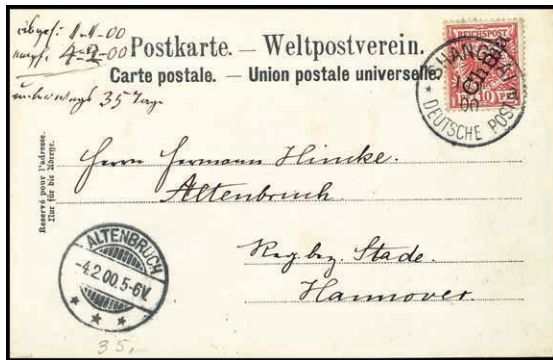 abges: 1-1-00
empf: 4-2-00
unterwegs 35 Tage.
Postkarte. — Weltpostverein.
Carte postale. — Union postale universelle.
REICHSPOST
10
China
SHANGHAI
DEUTSCHE POST
Reservé pour l'adresse.
Nur für die Adresse.
Herrn Hermann Hincke.
Altenbruch
Reg. bez. Stade.
Hannover.
ALTENBRUCH
-4.2.00.5-6V.
35.